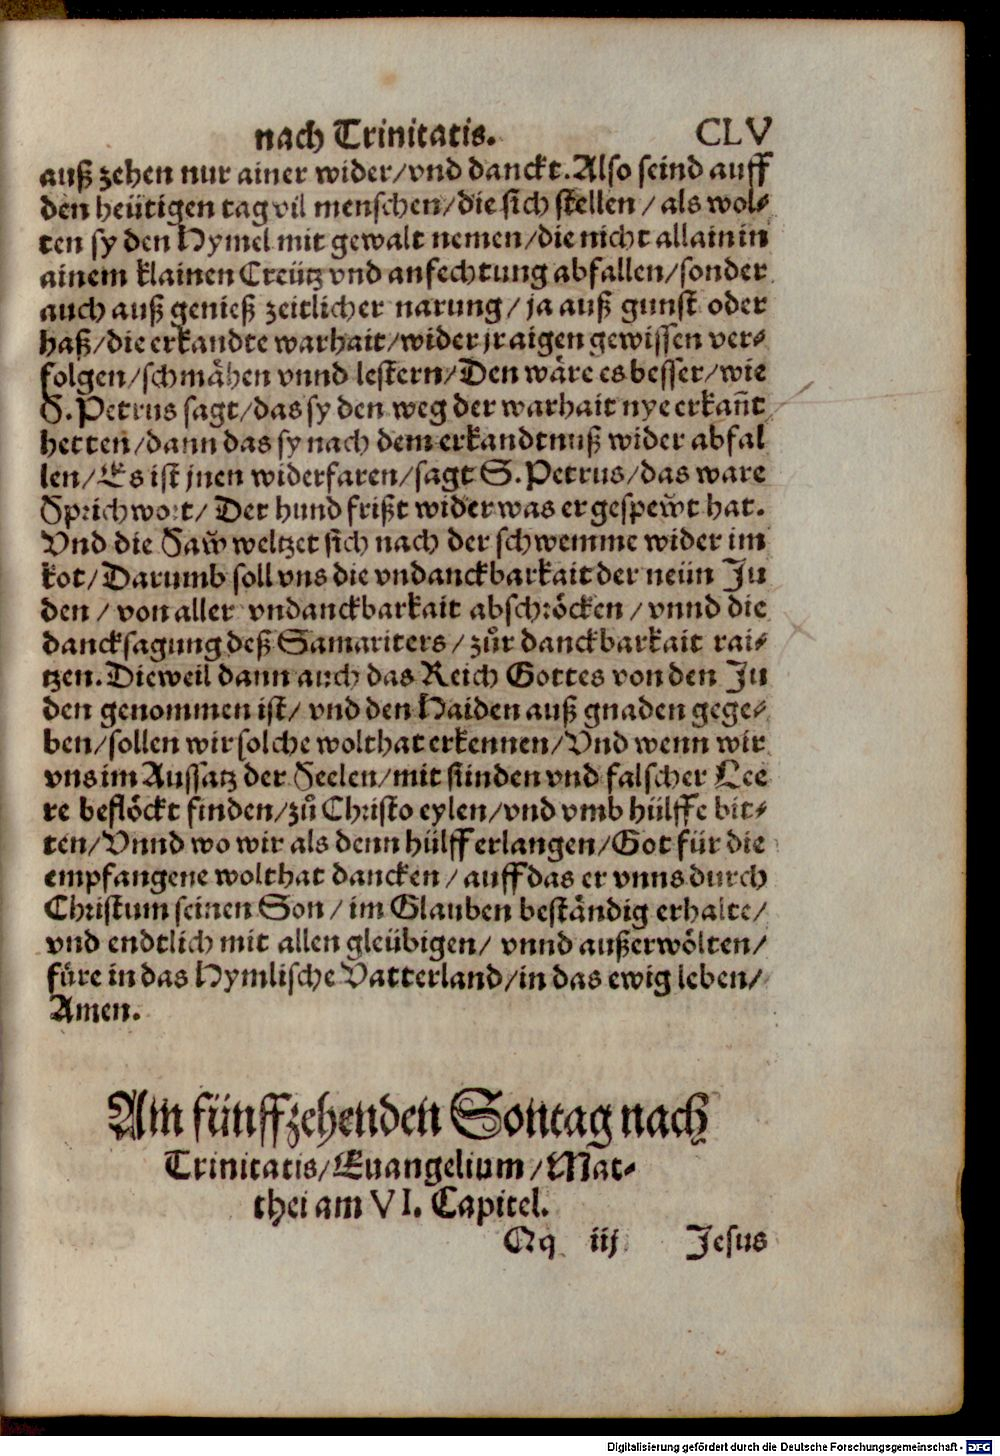 nach Trinitatis. CLV
auß zehen nur ainer wider/vnd danckt. Also seind auff
den heütigen tag vil menschen/die sich stellen/als wol-
ten sy den Hymel mit gewalt nemen/die nicht allain in
ainem klainen Creütz vnd anfechtung abfallen/sonder
auch auß genieß zeitlicher narung/ja auß gunst oder
haß/die erkandte warhait/wider jr aigen gewissen ver-
folgen/schmähen vnnd lestern/Den wäre es besser/wie
S. Petrus sagt/das sy den weg der warhait nye erkañt
hetten/dann das sy nach dem erkandtnuß wider abfal
len/Es ist jnen widerfaren/sagt S. Petrus/das ware
Sprichwort/Der hund frißt wider was er gespewt hat.
Vnd die Saw weltzet sich nach der schwemme wider im
kot/Darumb soll vns die vndanckbarkait der neün Ju
den/von aller vndanckbarkait abschröcken/vnnd die
dancksagung deß Samariters/zůr danckbarkait rai-
tzen. Dieweil dann auch das Reich Gottes von den Ju
den genommen ist/vnd den Haiden auß gnaden gege-
ben/sollen wir solche wolthat erkennen/Vnd wenn wir
vns im Aussatz der Seelen/mit sünden vnd falscher Lee
re beflöckt finden/zů Christo eylen/vnd vmb hülffe bit-
ten/Vnnd wo wir als denn hülff erlangen/Got für die
empfangene wolthat dancken/auff das er vnns durch
Christum seinen Son/im Glauben beständig erhalte/
vnd endtlich mit allen gleübigen/vnnd außerwölten/
füre in das Hymlische Vatterland/in das ewig leben/
Amen.
Am fünffzehenden Sontag nach
Trinitatis/Euangelium/Mat-
thei am VI. Capitel.
Qq iij Jesus
Digitalisierung gefördert durch die Deutsche Forschungsgemeinschaft - DFG